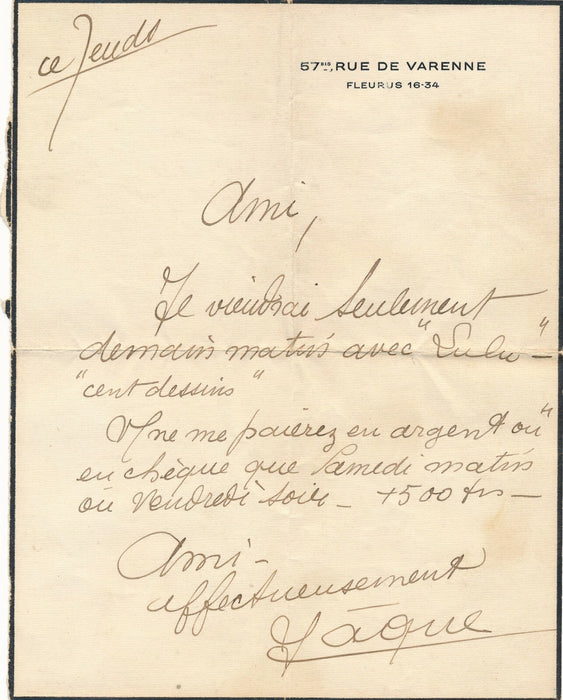 ce Jeudi
57 BIS, RUE DE VARENNE
FLEURUS 16-34
Ami,
Je viendrai seulement
demain matin avec "Lulu"-
"cent dessins"
ne me paierez en argent ou
en chèque que Samedi matin
ou Vendredi soir - +500 frs -
Ami-
affectueusement